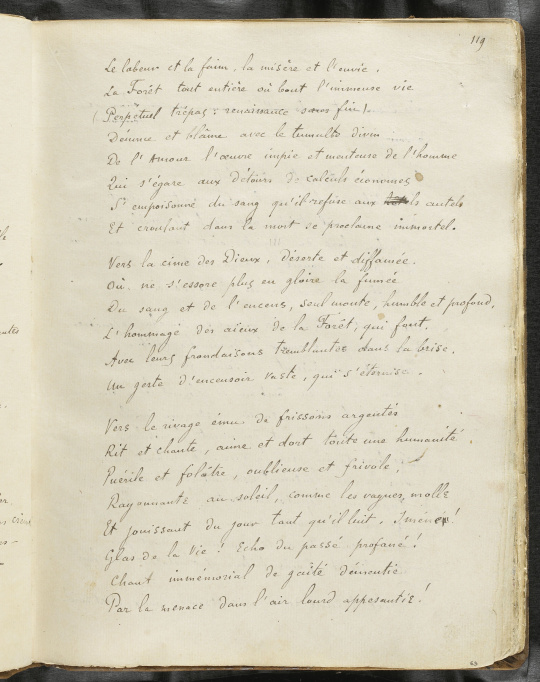 119
Le labeur et la faim, la misère et l'envie.
La Forêt tout entière où bout l'immense vie
(Perpétuel trépas : renaissance sans fin).
Dénonce et blâme avec le tumulte divin
De l'Amour l'œuvre impie et menteuse de l'homme
Qui s'égare aux détours de calculs économes
S'empoisonne du sang qu'il refuse aux autels
Et croulant dans la mort se proclame immortel.
Vers la cime des Dieux, déserte et diffamée.
Où ne s'essore plus en gloire la fumée
Du sang et de l'encens, seul monte, humble et profond,
L'hommage des aïeux de la Forêt, qui font,
Avec leurs frondaisons tremblantes dans la brise,
Un geste d'encensoir vaste, qui s'éternise.
Vers le rivage ému de frissons argentés
Rit et chante, aime et dort toute une humanité,
Puérile et folâtre, oublieuse et frivole,
Rayonnante au soleil, comme les vagues molles
Et jouissant du jour tant qu'il luit. !
Glas de la Vie ! Echo du passé profané !
Chant immémorial de gaîté démentie
Par la menace dans l'air lourd appesantie !